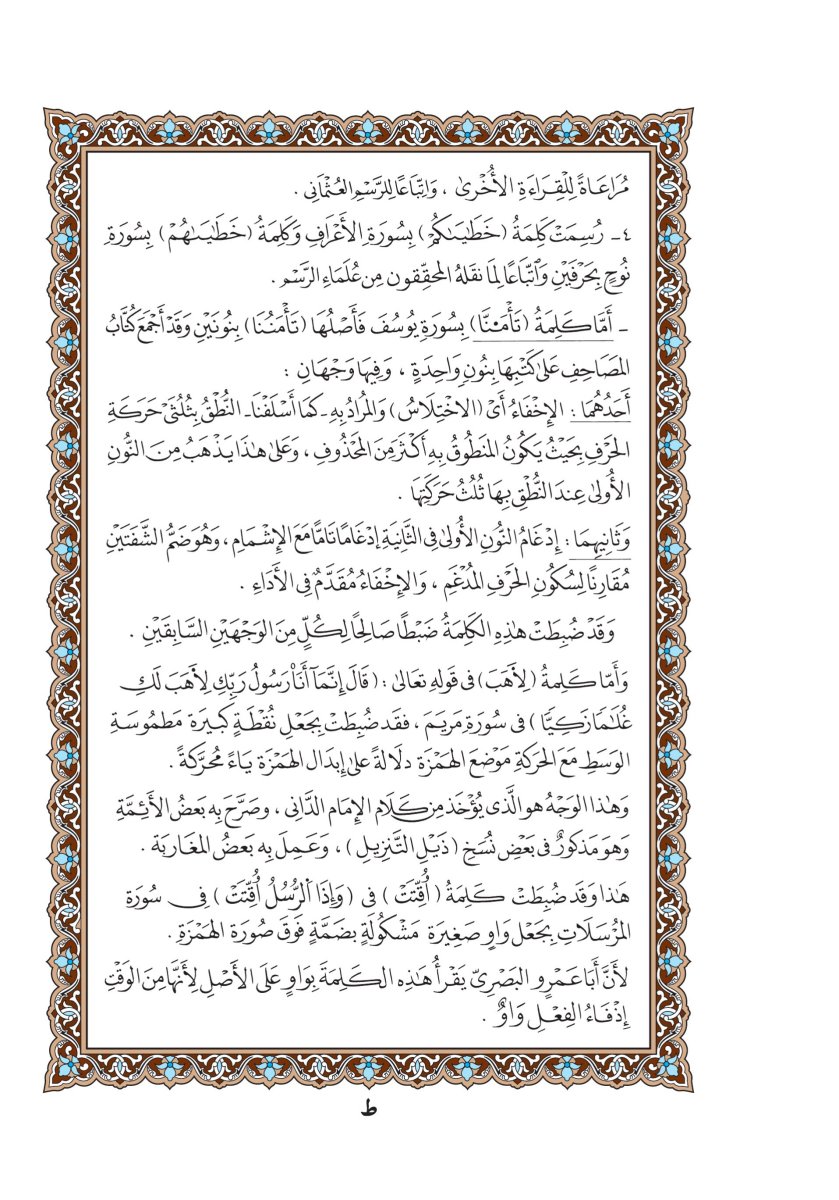 مُرَاعَاةً لِلْقِرَاءَةِ الأُخْرَىٰ ، وَاتِّبَاعًا لِلرَّسْمِ العُثْمَانِي .
٤ـ رُسِمَتْ كَلِمَةُ (خَطَٰيَـٰكُمْ) بِسُورَةِ الأَعْرَافِ وَكَلِمَةُ (خَطَٰيَـٰهُمْ) بِسُورَةِ
نُوحٍ بِحَرْفَيْنِ وَٱتِّبَاعًا لِمَا نَقَلَهُ المحقِّقون مِن عُلَمَاءِ الرَّسْم .
ـ أَمَّا كَلِمَةُ (تَأْمَنَّا) بِسُورَةِ يُوسُفَ فَأَصْلُهَا (تَأْمَنُنَا) بِنُونَيْنِ وَقَدْ أَجْمَعَ كُتَّابُ
المَصَاحِفِ عَلَىٰ كَتْبِهَا بِنُونٍ وَاحِدَةٍ ، وَفِيهَا وَجْهَانِ :
أَحَدُهُمَا : الإِخْفَاءُ أَيْ (الاخْتِلَاسُ) وَالمُرَادُ بِهِ ـ كَمَا أَسْلَفْنَا ـ النُّطْقُ بِثُلُثَيْ حَرَكَةِ
الحَرْفِ بِحَيْثُ يَكُونُ المَنطُوقُ بِهِ أَكْثَرَ مِنَ المَحْذُوفِ ، وَعَلَىٰ هَٰذَا يَذْهَبُ مِنَ النُّونِ
الأُولَىٰ عِندَ النُّطْقِ بِهَا ثُلُثُ حَرَكَتِهَا .
وَثَانِيهِمَا : إِدْغَامُ النُّونِ الأُولَىٰ فِي الثَّانِيَةِ إِدْغَامًا تَامًّا مَعَ الإِشْمَامِ ، وَهُوَ ضَمُّ الشَّفَتَيْنِ
مُقَارِنًا لِسُكُونِ الحَرْفِ المُدْغَمِ ، وَالإِخْفَاءُ مُقَدَّمٌ فِي الأَدَاءِ .
وَقَدْ ضُبِطَتْ هَٰذِهِ الكَلِمَةُ ضَبْطًا صَالِحًا لِكُلٍّ مِنَ الوَجْهَيْنِ السَّابِقَيْنِ .
وَأَمَّا كَلِمَةُ (لِأَهَبَ) فِي قَولِهِ تَعَالَىٰ : (قَالَ إِنَّمَآ أَنَا۠ رَسُولُ رَبِّكِ لِأَهَبَ لَكِ
غُلَٰمًا زَكِيًّا) فِي سُورَةِ مَرْيَمَ ، فَقَد ضُبِطَتْ بِجَعْلِ نُقْطَةٍ كَبِيرَة مَطْمُوسَةِ
الوَسَطِ مَعَ الحَرَكَةِ مَوْضِعَ الهَمْزَة دلَالَةً عَلَىٰ إِبدَالِ الهَمْزَة يَاءً مُحَرَّكَةً .
وَهَٰذَا الوَجْهُ هُوَ الَّذِي يُؤْخَذ مِن كَلَامِ الإمَام الدَّانِي ، وصَرَّحَ بِه بَعضُ الأَئِمَّةِ
وَهُوَ مَذكورٌ فِي بَعْضِ نُسَخِ (ذَيْلِ التَّنزِيلِ) ، وَعَمِلَ بِه بَعْضُ المَغَارِبَة .
هَٰذَا وَقَد ضُبِطَتْ كَلِمَةُ (أُقِّتَتْ) فِي (وَإِذَا ٱلرُّسُلُ أُقِّتَتْ) فِي سُورَةِ
المُرْسَلَاتِ بِجَعْلِ وَاوٍ صَغِيرَة مَشْكُولَةٍ بِضَمَّةٍ فَوْقَ صُورَةِ الهَمْزَةِ .
لأَنَّ أَبَا عَمْرٍو البَصْرِيّ يَقْرَأُ هَٰذِهِ الكَلِمَةَ بِوَاوٍ عَلَى الأَصْلِ لِأَنَّهَا مِنَ الوَقْتِ
إِذْ فَاءُ الفِعْلِ وَاوٌ .
ط